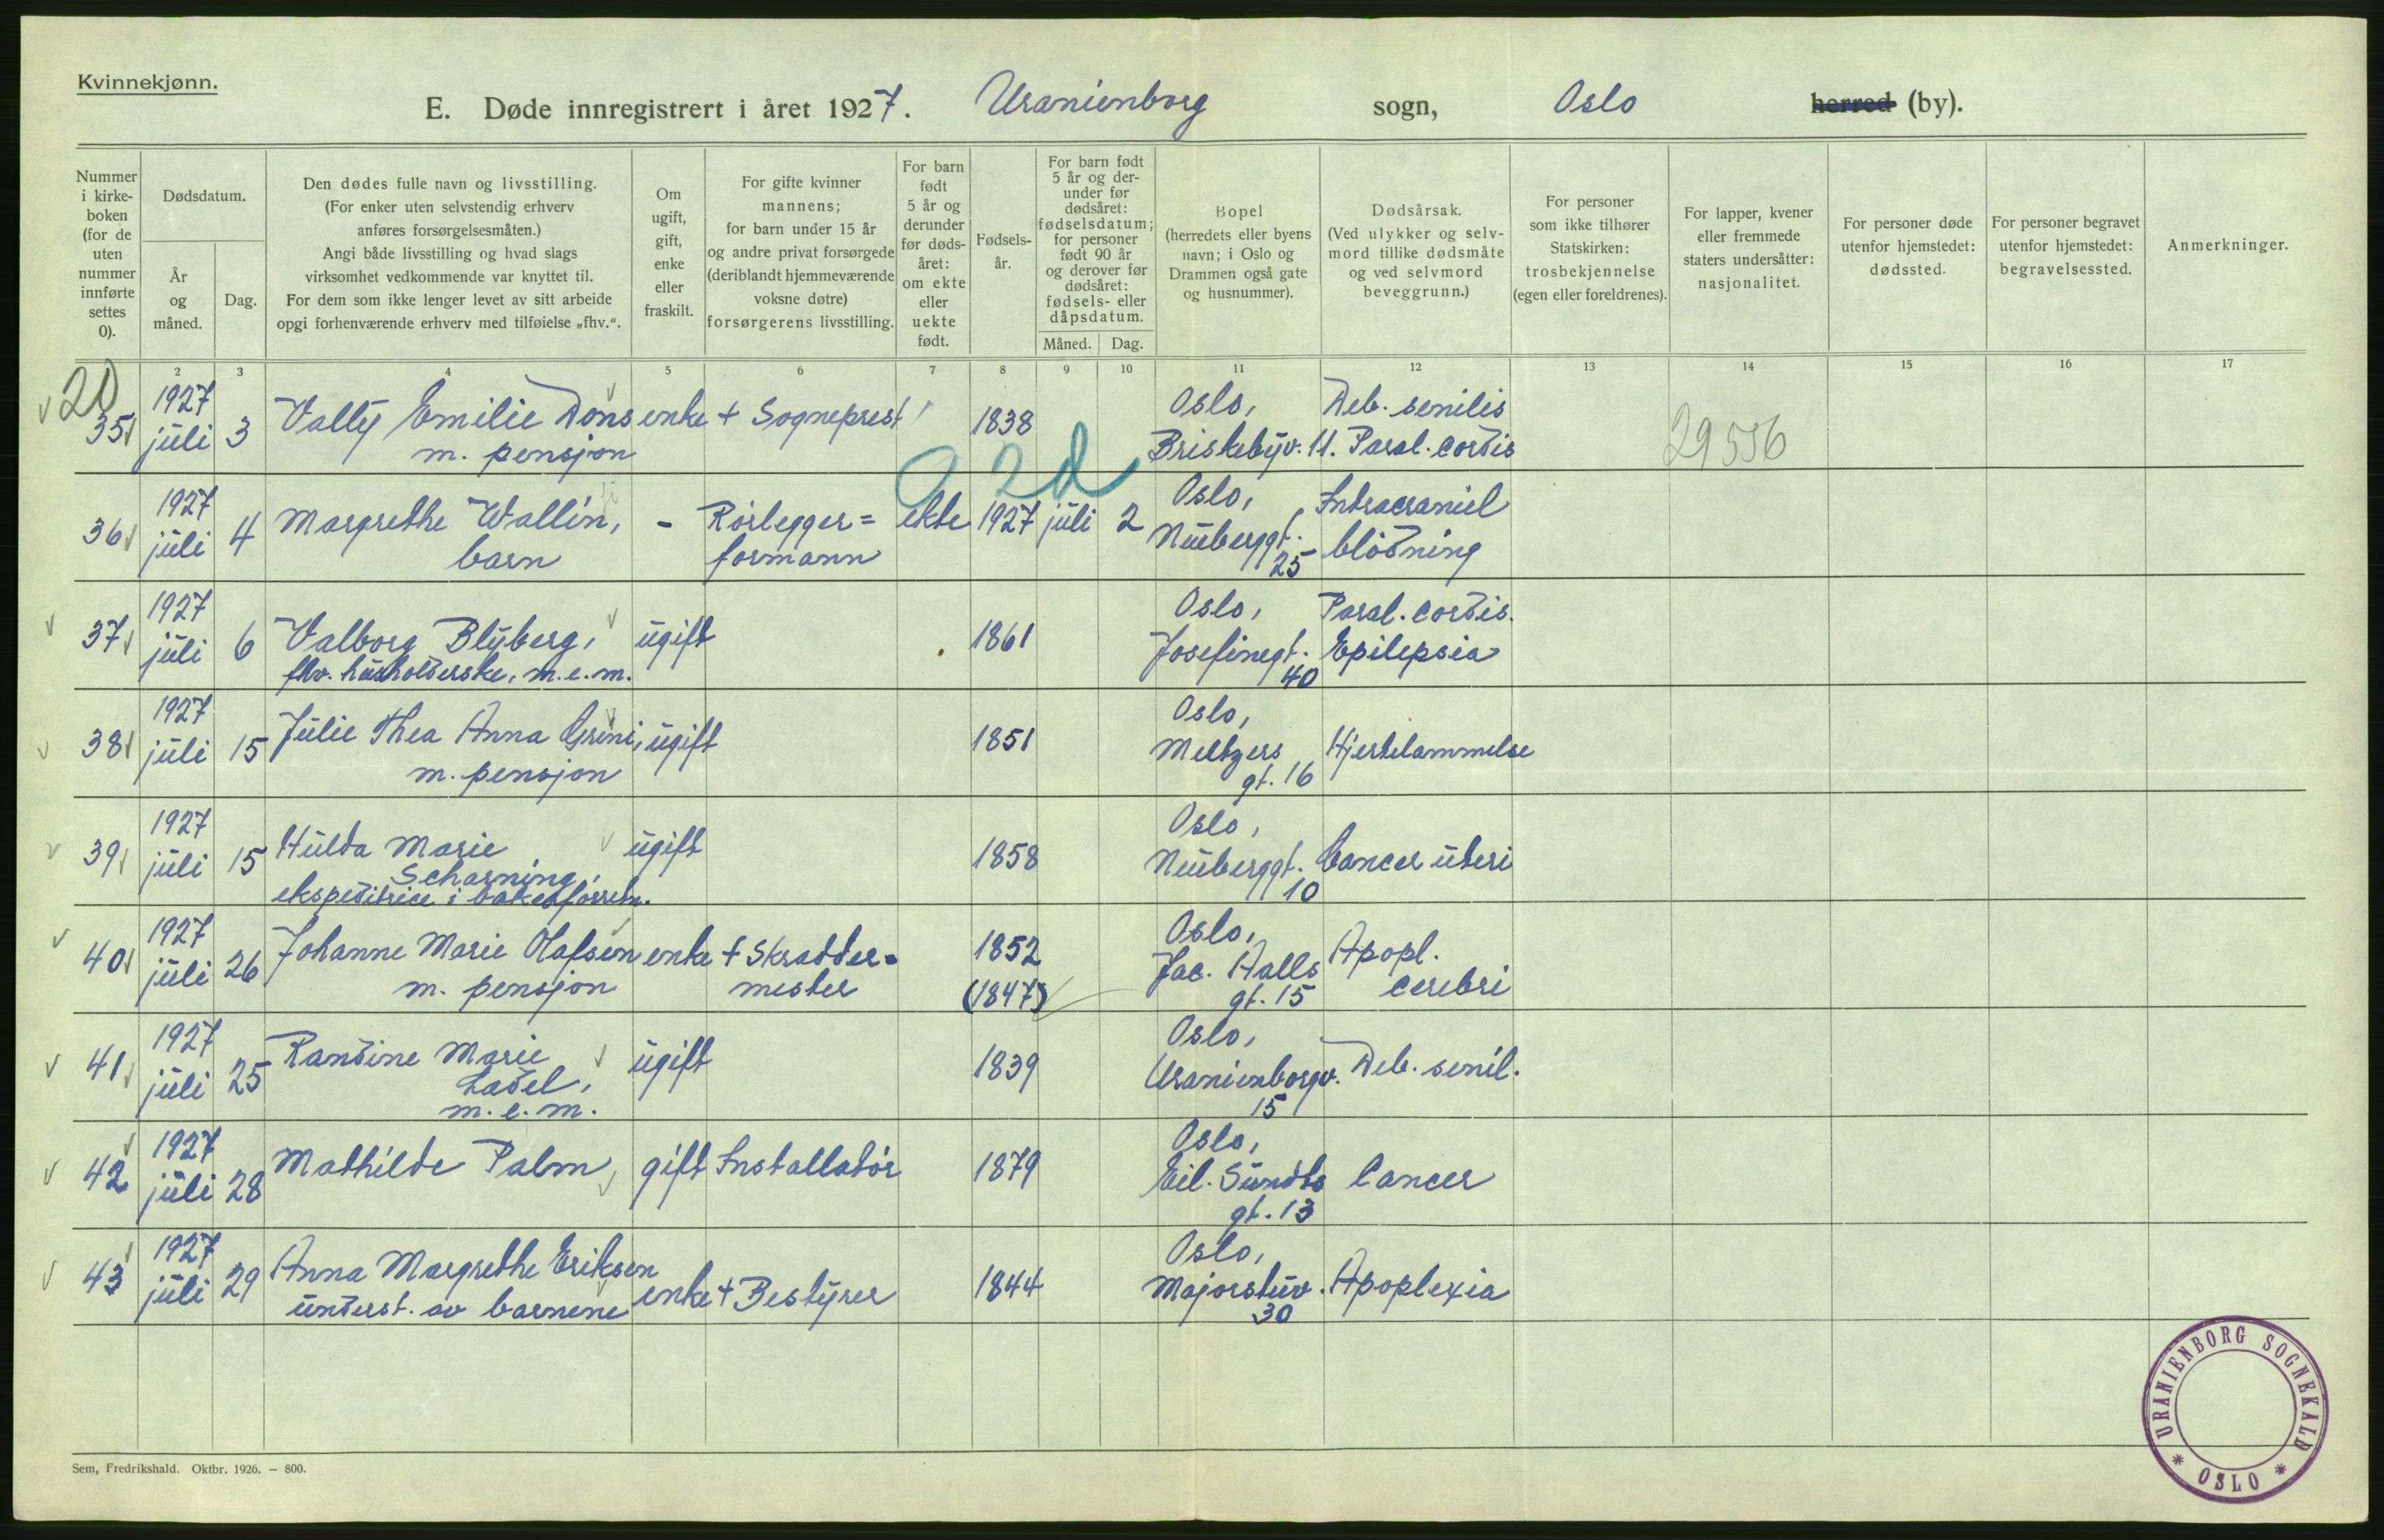 Kvinnekjønn.
E. Døde innregistrert i året 1927. Uranienborg sogn, Oslo herred (by).
Nummer i kirkeboken (for de uten nummer innførte settes 0).
Dødsdatum.
År og måned.
Dag.
Den dødes fulle navn og livsstilling.
(For enker uten selvstendig erhverv
anføres forsørgelsesmåten.)
Angi både livsstilling og hvad slags
virksomhet vedkommende var knyttet til.
For dem som ikke lenger levet av sitt arbeide
opgi forhenværende erhverv med tilføielse „fhv.“.
Om ugift, gift, enke eller fraskilt.
For gifte kvinner
mannens;
for barn under 15 år
og andre privat forsørgede
(deriblandt hjemmeværende
voksne døtre)
forsørgerens livsstilling.
For barn født 5 år og derunder før dødsåret: om ekte eller uekte født.
Fødselsår.
For barn født
5 år og derunder før
dødsåret:
fødselsdatum;
for personer
født 90 år
og derover før
dødsåret:
fødsels- eller
dåpsdatum.
Måned. Dag.
Bopel
(herredets eller byens
navn; i Oslo og
Drammen også gate
og husnummer).
Dødsårsak.
(Ved ulykker og selvmord tillike dødsmåte
og ved selvmord
beveggrunn.)
For personer
som ikke tilhører
Statskirken:
trosbekjennelse
(egen eller foreldrenes).
For lapper, kvener
eller fremmede
staters undersåtter:
nasjonalitet.
For personer døde
utenfor hjemstedet:
dødssted.
For personer begravet
utenfor hjemstedet:
begravelsessted.
Anmerkninger.
2 3 4 5 6 7 8 9 10 11 12 13 14 15 16 17
20
35 1927 juli 3 Vally Emilie Dons m. pensjon enke + Sogneprest 1838 Oslo, Briskebyv. 11. Deb. senilis Paral. cordis 29556
2d
36 1927 juli 4 Margrethe Wallin, barn - Rørlegger= formann ekte 1927 juli 2 Oslo, Nüberggt. 25 Intracraniel blødning
37 1927 juli 6 Valborg Blyberg, fhv. husholderske, m.e.m. ugift 1861 Oslo, Josefinegt. 40 Paral. cordis. Epilepsia
38 1927 juli 15 Julie Thea Anna Grini, m. pensjon ugift 1851 Oslo, Meltzers gt. 16 Hjertelammelse
39 1927 juli 15 Hulda Marie Scharning, ekspeditrice i bakerforretn. ugift 1858 Oslo, Nüberggt. 10 Cancer uteri
40 1927 juli 26 Johanne Marie Olafsen m. pensjon enke + Skredder= mester 1852 (1847) Oslo, Jac. Aalls gt. 15 Apopl. cerebri
41 1927 juli 25 Randine Marie Ladel, m.e.m. ugift 1839 Oslo, Uranienborgv. 15 Deb. senil.
42 1927 juli 28 Mathilde Palm, gift Installatør 1879 Oslo, Eil. Sundts gt. 13 Cancer
43 1927 juli 29 Anna Margrethe Eriksen underst. av barnene enke + Bestyrer 1844 Oslo, Majorstuv. 30 Apoplexia
Sem, Fredrikshald. Oktbr. 1926. — 800.
* URANIENBORG SOGNEKALD * OSLO